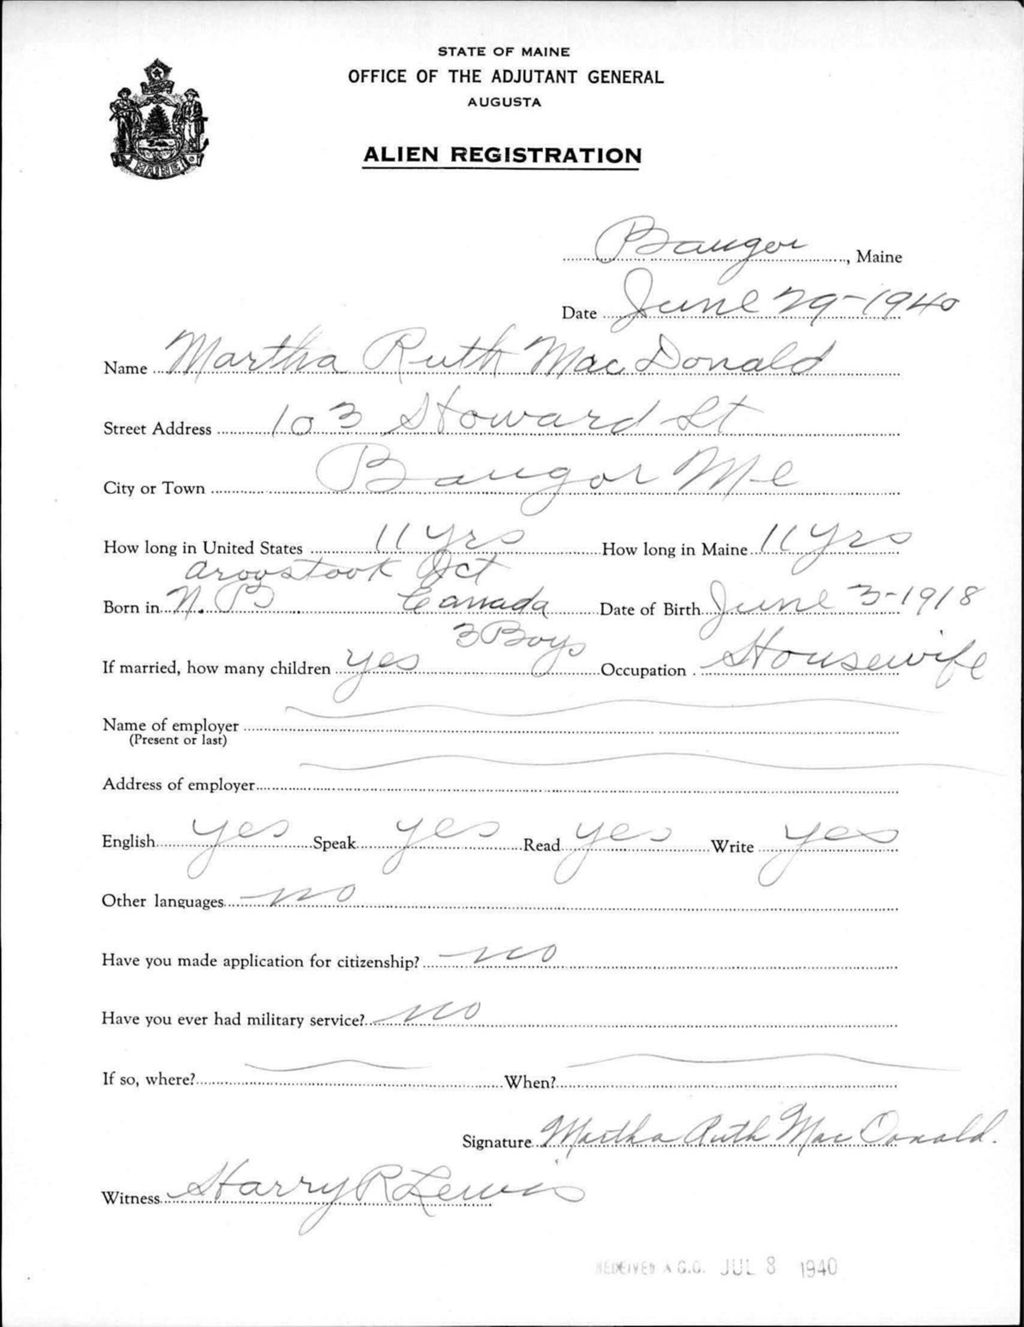 STATE OF MAINE
OFFICE OF THE ADJUTANT GENERAL
AUGUSTA
MAINE
ALIEN REGISTRATION
Bangor, Maine
Date June 29-1940
Name Martha Ruth MacDonald
Street Address 103 Howard St
City or Town Bangor Me
How long in United States 11 Yrs How long in Maine 11 Yrs
Aroostook Jct
Born in N.B Canada Date of Birth June 3-1918
3 Boys
If married, how many children yes Occupation Housewife
Name of employer
(Present or last)
Address of employer
English yes Speak yes Read yes Write yes
Other languages no
Have you made application for citizenship? no
Have you ever had military service? no
If so, where? When?
Signature Martha Ruth MacDonald.
Witness Harry R Lewis
RECEIVED A.G.O. JUL 8 1940